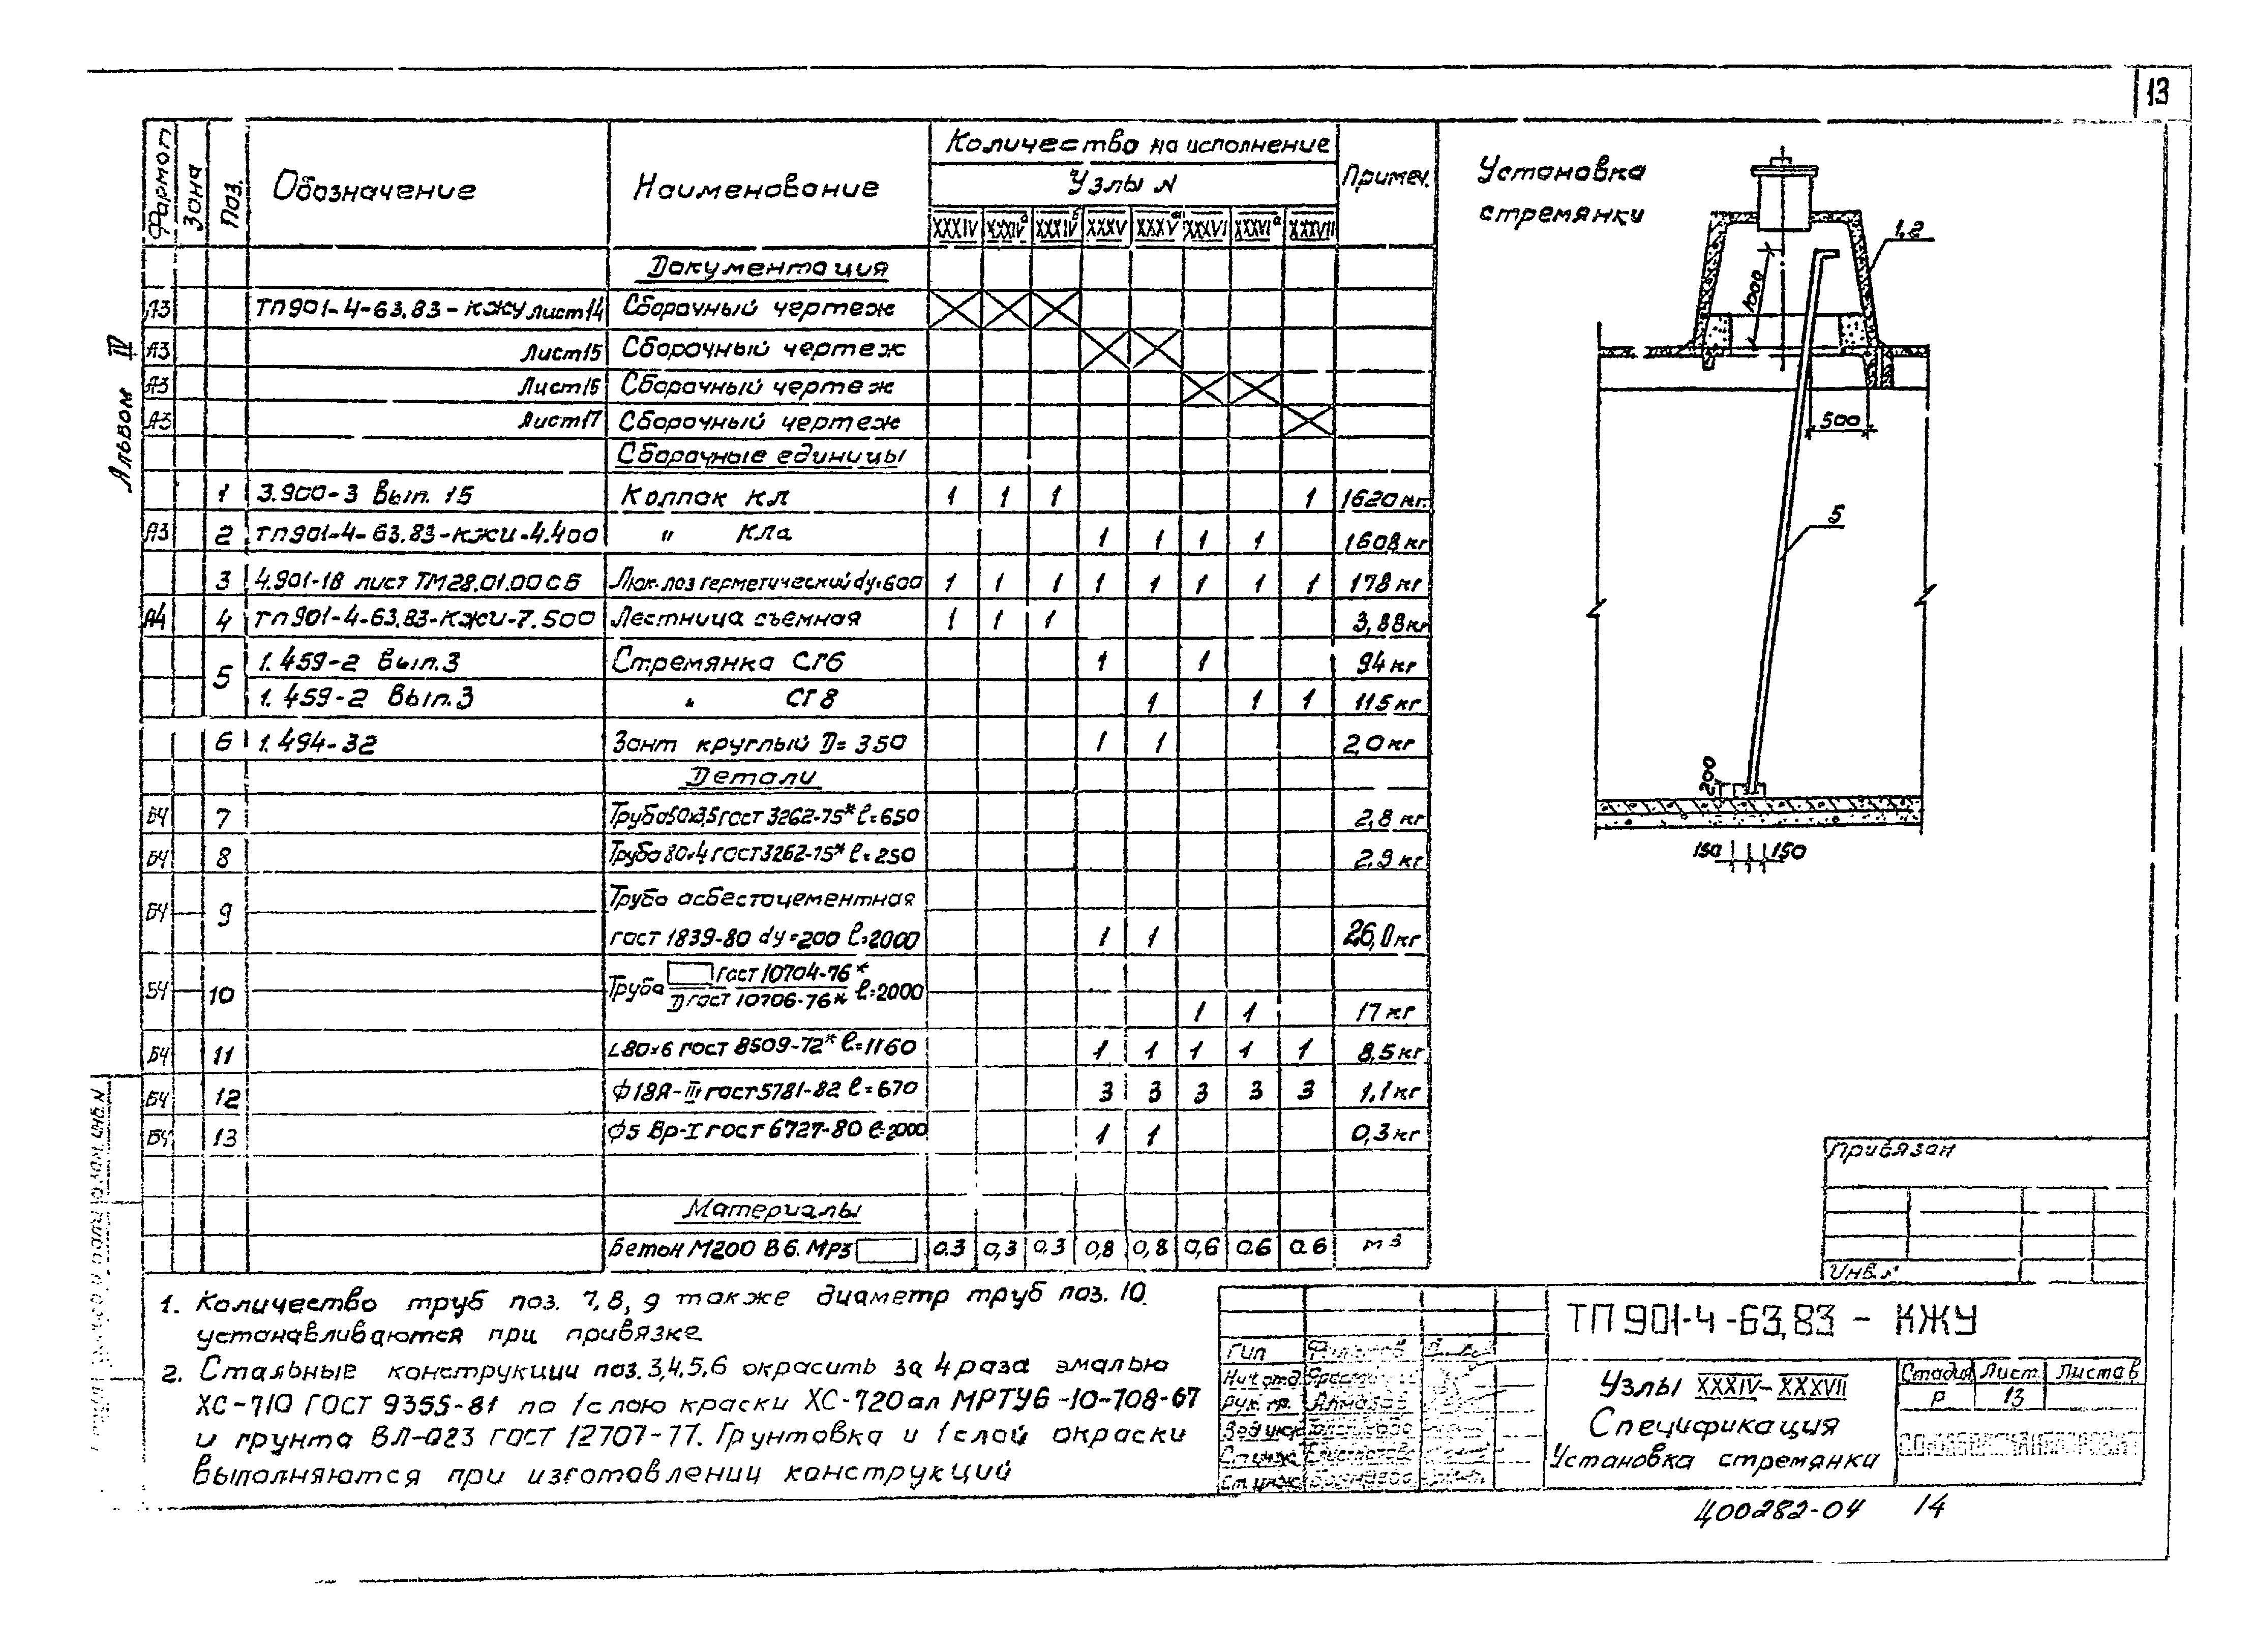 13
Альбом IV
Формат Зона Поз. Обозначение Наименование Количество на исполнение Примеч.
Узлы N
XXXIV XXXIVа XXXIVб XXXV XXXVа XXXVI XXXVIа XXXVII
Документация
А3 ТП901-4-63.83-КЖУ лист14 Сборочный чертеж
А3 Лист15 Сборочный чертеж
А3 Лист16 Сборочный чертеж
А3 Лист17 Сборочный чертеж
Сборочные единицы
1 3.900-3 Вып. 15 Колпак КЛ 1 1 1 1 1620кг.
А3 2 ТП901-4-63.83-КЖИ-4.400 " КЛа 1 1 1 1 1608кг
3 4.901-18 лист ТМ28.01.00СБ Люк-лаз герметический dу=600 1 1 1 1 1 1 1 1 178 кг
А4 4 ТП901-4-63.83-КЖИ-7.500 Лестница съемная 1 1 1 3,88кг
5 1.459-2 Вып.3 Стремянка СГ6 1 1 94 кг
1.459-2 Вып.3 " СГ8 1 1 1 115 кг
6 1.494-32 Зонт круглый D=350 1 1 2,0 кг
Детали
БЧ 7 Труба50х3,5 гост 3262-75* ℓ=650 2,8 кг
БЧ 8 Труба 80х4 гост 3262-75* ℓ=250 2,9 кг
БЧ 9 Труба асбестоцементная
гост 1839-80 dу=200 ℓ=2000 1 1 26,0кг
БЧ 10 Труба гост 10704-76*
Д гост 10706-76* ℓ=2000 1 1 17 кг
БЧ 11 L80×6 гост 8509-72* ℓ=1160 1 1 1 1 1 8,5кг
БЧ 12 Ф18А-III гост5781-82 ℓ=670 3 3 3 3 3 1,1кг
БЧ 13 Ф5 Вр-I гост 6727-80 ℓ=2000 1 1 0,3кг
Материалы
Бетон М200 В6. Мрз 0.3 0,3 0.3 0,8 0,8 0,6 0.6 0.6 м3
1. Количество труб поз. 7, 8, 9 также диаметр труб поз. 10.
устанавливаются при привязке.
2. Стальные конструкции поз. 3,4,5,6 окрасить за 4 раза эмалью
ХС-710 ГОСТ 9355-81 по 1слою краски ХС-720ал МРТУ6-10-708-67
и грунта ВЛ-023 гост 12707-77. Грунтовка и 1слой окраски
выполняются при изготовлении конструкций
Установка
стремянки
1,2
1000
500
5
200
150 150
Привязан
Инв.№
ТП 901-4-63,83 - КЖУ
Гип
Нач отд
Рук. гр.
Вед инж
Ст инж
Ст инж
Узлы XXXIV-XXXVII
Спецификация
Установка стремянки
Стадия Лист Листов
Р 13
400282-04 14